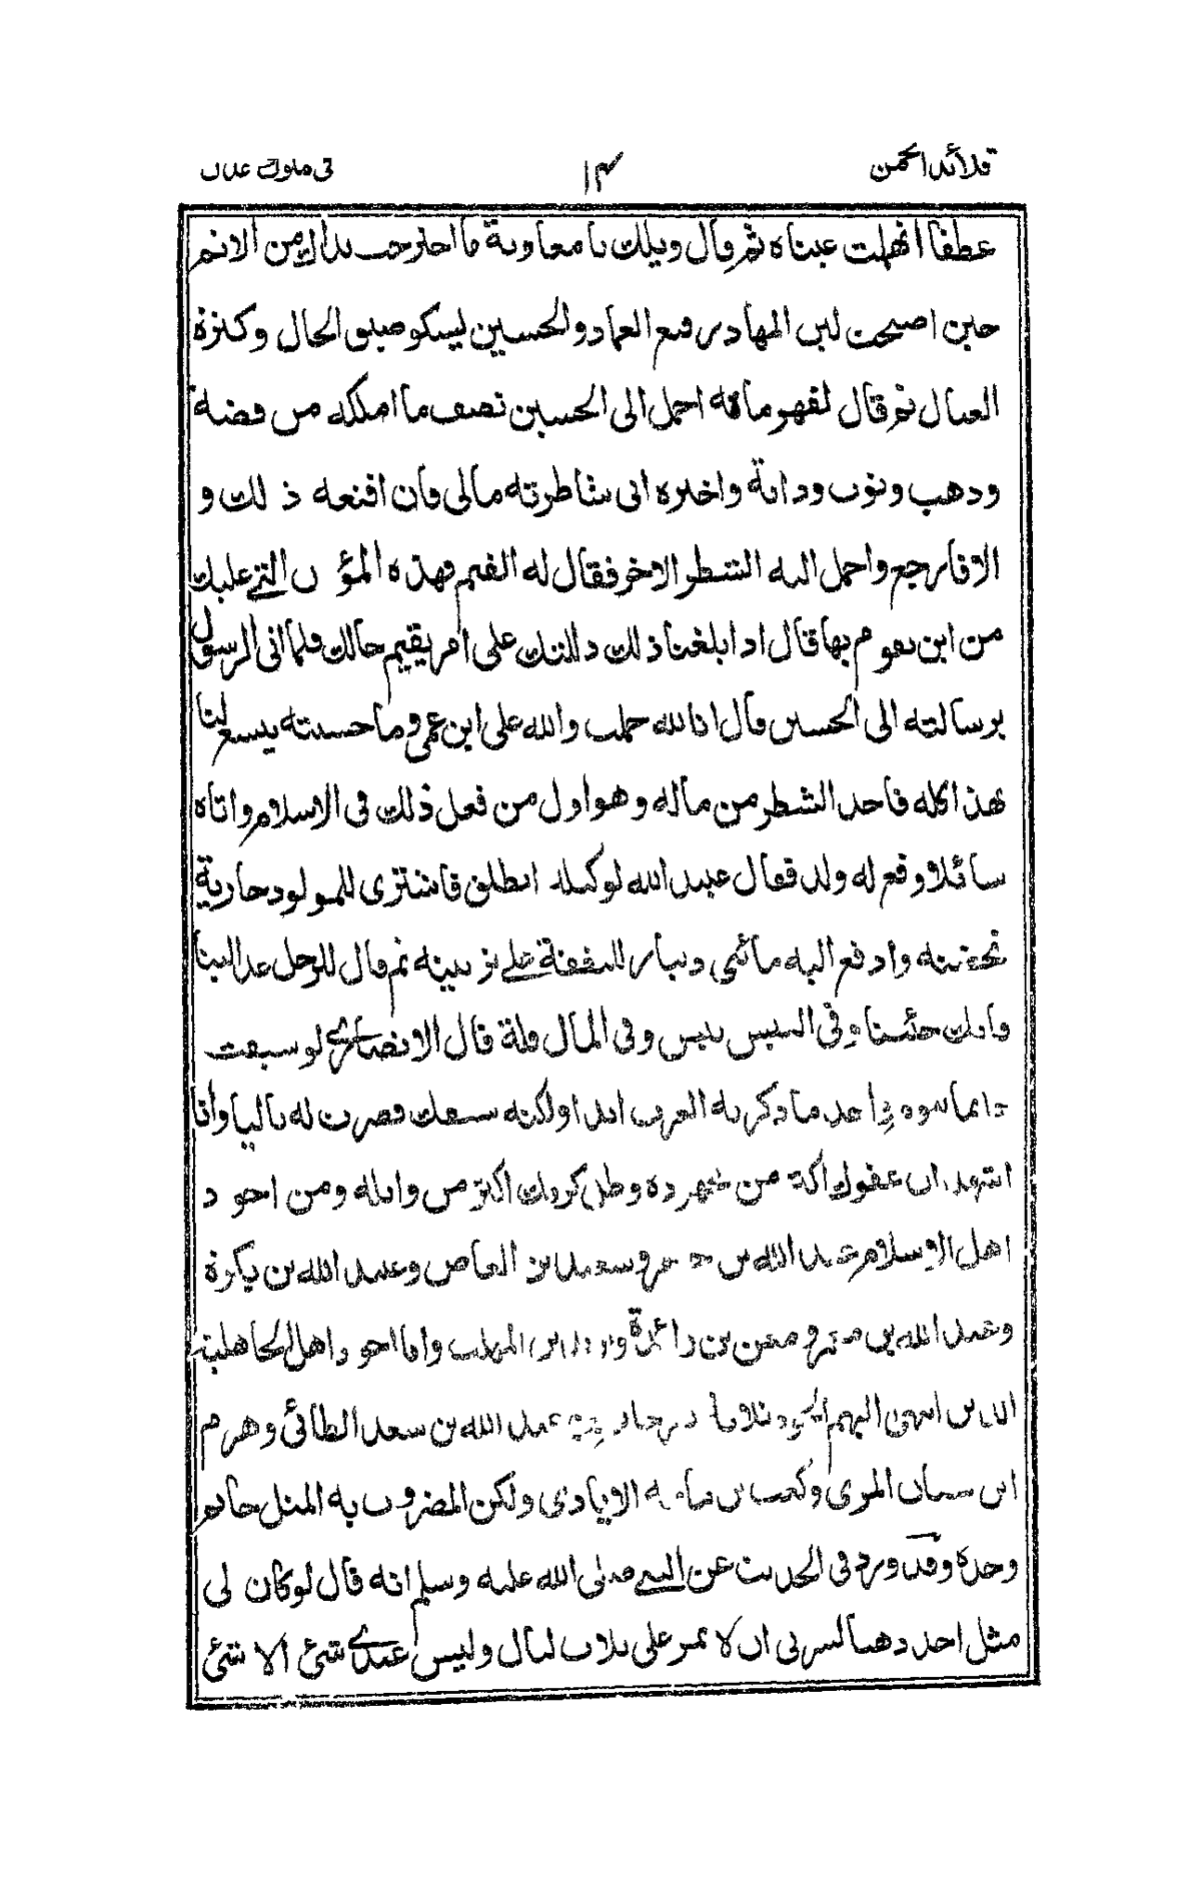 قلائد الجمن ١٣ فى ملوك عدن
عطفا انهلت عيناه ثم قال ويلك يا معاوية ما اجترحت يداك من الاثم
حين اصبحت لين المهاد رفيع العماد والحسين يشكو ضيق الحال وكثرة
العيال ثم قال لقهرمانه احمل الى الحسين نصف ما املكه من فضة
وذهب وثوب ودابة واخبره انى شاطرته مالى فان اقنعه ذ لك و
الافارجع واحمل اليه الشطر الاخر فقال له القيم فهذه المؤ ن التى عليك
من اين تقو م بها قال اذا بلغنا ذلك دللتك على امر يقيم حالك فلما اتى الرسول
برسالته الى الحسين قال انا لله حملت والله على ابن عمى وما حسبته يتسع لنا
بهذا كله فاخذ الشطر من ماله وهو اول من فعل ذلك فى الاسلام واتاه
سائلا وقع له ولد فقال عبد الله لوكيله انطلق فاشترى للمولود جارية
تحضنه وادفع اليه مائتى دينار للنفقة على تربيته ثم قال للرجل عد الينا
وانك جئتنا وفى العيش يبس وفى المال قلة قال الانصارى لو سبقت
حاتما بيوم واحد ما ذكرته العرب ابدا ولكنه سبقك فصرت له تاليا وانا
اشهد ان عفوك اكثر من مجهوده وطل كرمك اكثر من وابله ومن اجو د
اهل الاسلام عبد الله بن جعفر وسعيد بن العاص وعبيد الله بن بكرة
وعبيد الله بن معمر ومعن بن زائدة ويزيد بن المهلب واما اجو د اهل الجاهلية
الذين انتهى اليهم الجود ثلاثة عبد الله بن سعد الطائى وهرم
ابن سنان المرى وكعب بن مامه الايادى ولكن المضروب به المثل حاتم
وحده وقد ورد فى الحديث عن النبى صلى الله عليه وسلم انه قال لو كان لى
مثل احد ذهبا لسرنى ان لا تمر على ثلاث ليال وليس عندى شئ الا شئ